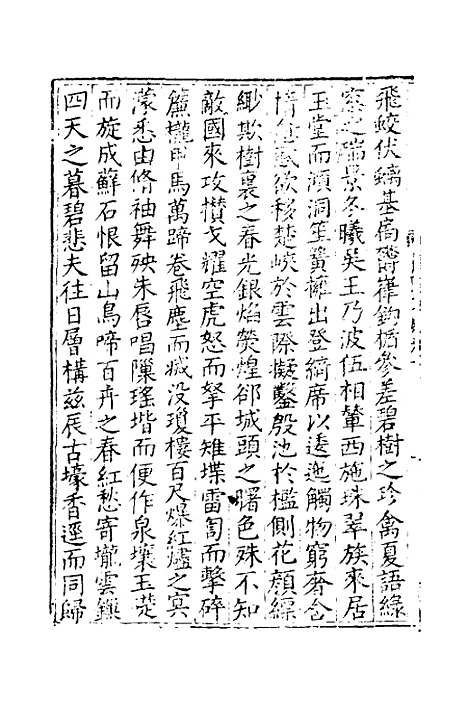 飛蛟伏螭基扃欝嵂鈎楯參差碧樹之珍禽夏語緑
窓之瑞景冬曦吳王乃波伍相輦西施珠翠族來居
玉堂而澒洞笙簧擁出登綺席以逶迤觸物窮奢含
情愈惑欲移楚峽於雲際擬鑿殷池於檻側花顔縹
緲欺樹裏之春光銀焰熒煌却城頭之曙色殊不知
敵國來攻攢戈耀空虎怒而拏平雉堞雷訇而擊碎
簾櫳甲馬萬蹄卷飛塵而滅没瓊樓百尺爆紅燼之冥
濛悉由脩袖舞殃朱唇唱隟瑤堦而便作泉壤玉礎
而旋成蘚石恨留山鳥啼百卉之春紅愁寄壠雲鎻
四天之暮碧悲夫往日層構兹辰古壕香逕而同歸